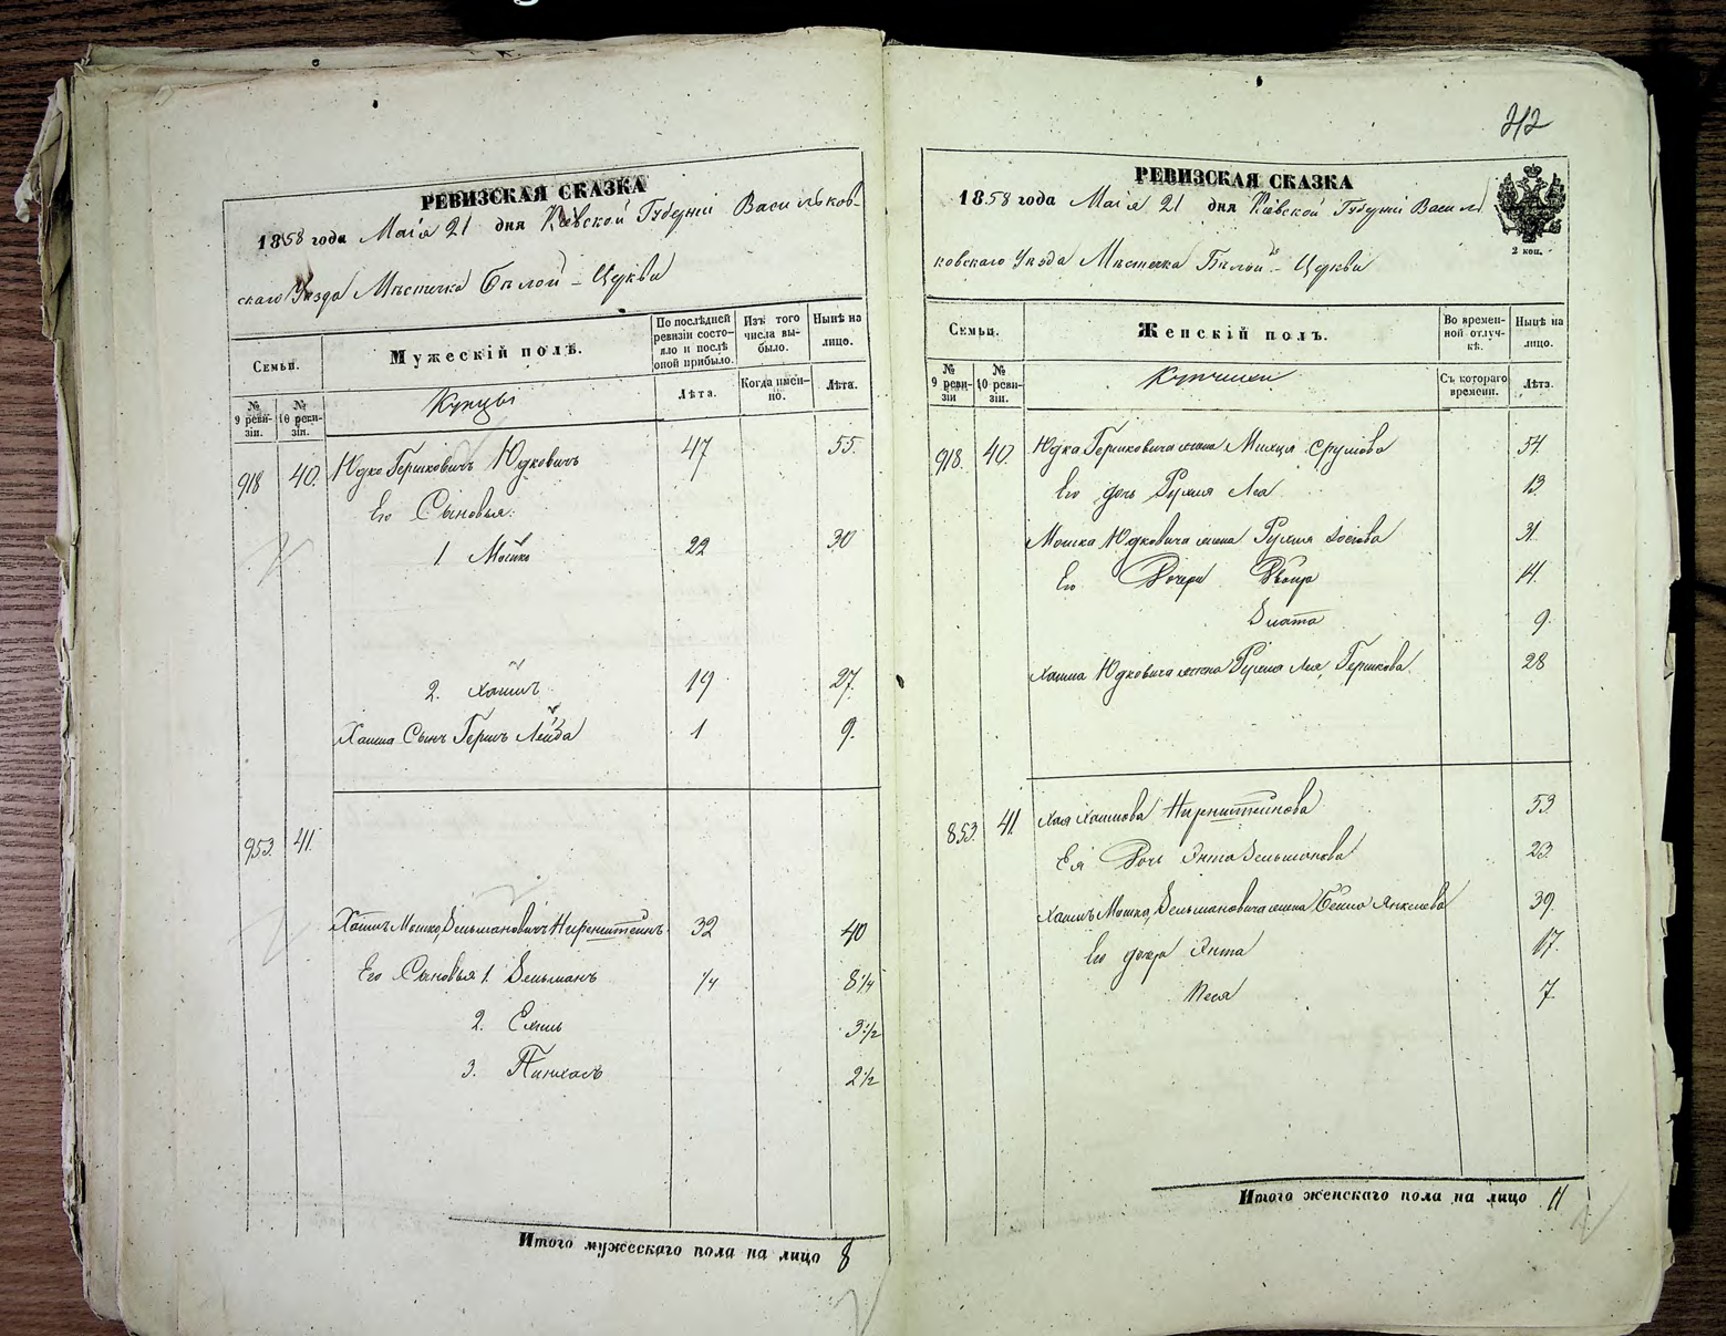 РЕВИЗСКАЯ СКАЗКА
1858 года Маія 21 дня Кіевской Губерніи Васильков-
скаго Уѣзда Мѣстечка Бѣлой-Церкви
Семьи.
№ 9 ревизіи.
№ 10 ревизіи.
Мужескій полъ.
Купцы
По послѣдней ревизіи состояло и послѣ оной прибыло.
Лѣта.
Изъ того числа выбыло.
Когда именно.
Нынѣ на лицо.
Лѣта.
918 40. Юдко Гершковичъ Юдковичъ 47 55.
Его Сыновья:
1 Мошко 22 30
2. Хаимъ 19 27.
Хаима Сынъ Гершъ Лейба 1 9.
953. 41.
Хаимъ Мошко Зельмановичъ Ниренштеинъ 32 40
Его Сыновья 1. Зельманъ 1/4 8 1/4
2. 3 1/2
3. Пинхасъ 2 1/2
Итого мужескаго пола на лицо 8
212
РЕВИЗСКАЯ СКАЗКА
1858 года Маія 21 дня Кіевской Губерніи Василь
ковскаго Уѣзда Мѣстечка Бѣлой-Церкви
2 коп.
Семьи.
№ 9 ревизіи
№ 10 ревизіи.
Женскій полъ.
Купчихи
Во временной отлучкѣ.
Съ котораго времени.
Нынѣ на лицо.
Лѣта.
918. 40. Юдка Гершковича жена Срулова 54.
Его дочь Рухля Лея 13.
Мошка Юдковича жена Рухля 31.
Его Дочери Двойра 14.
Злата 9.
Хаима Юдковича жена Рухля Лея Гершкова. 28
853. 41. Хая Хаимова Ниренштеинова 53
Ея Дочь Энта Зельманова 23.
Хаимъ Мошка Зельмановича жена Янкелева 39.
Его дочери Энта 17.
Песя 7.
Итого женскаго пола на лицо 11